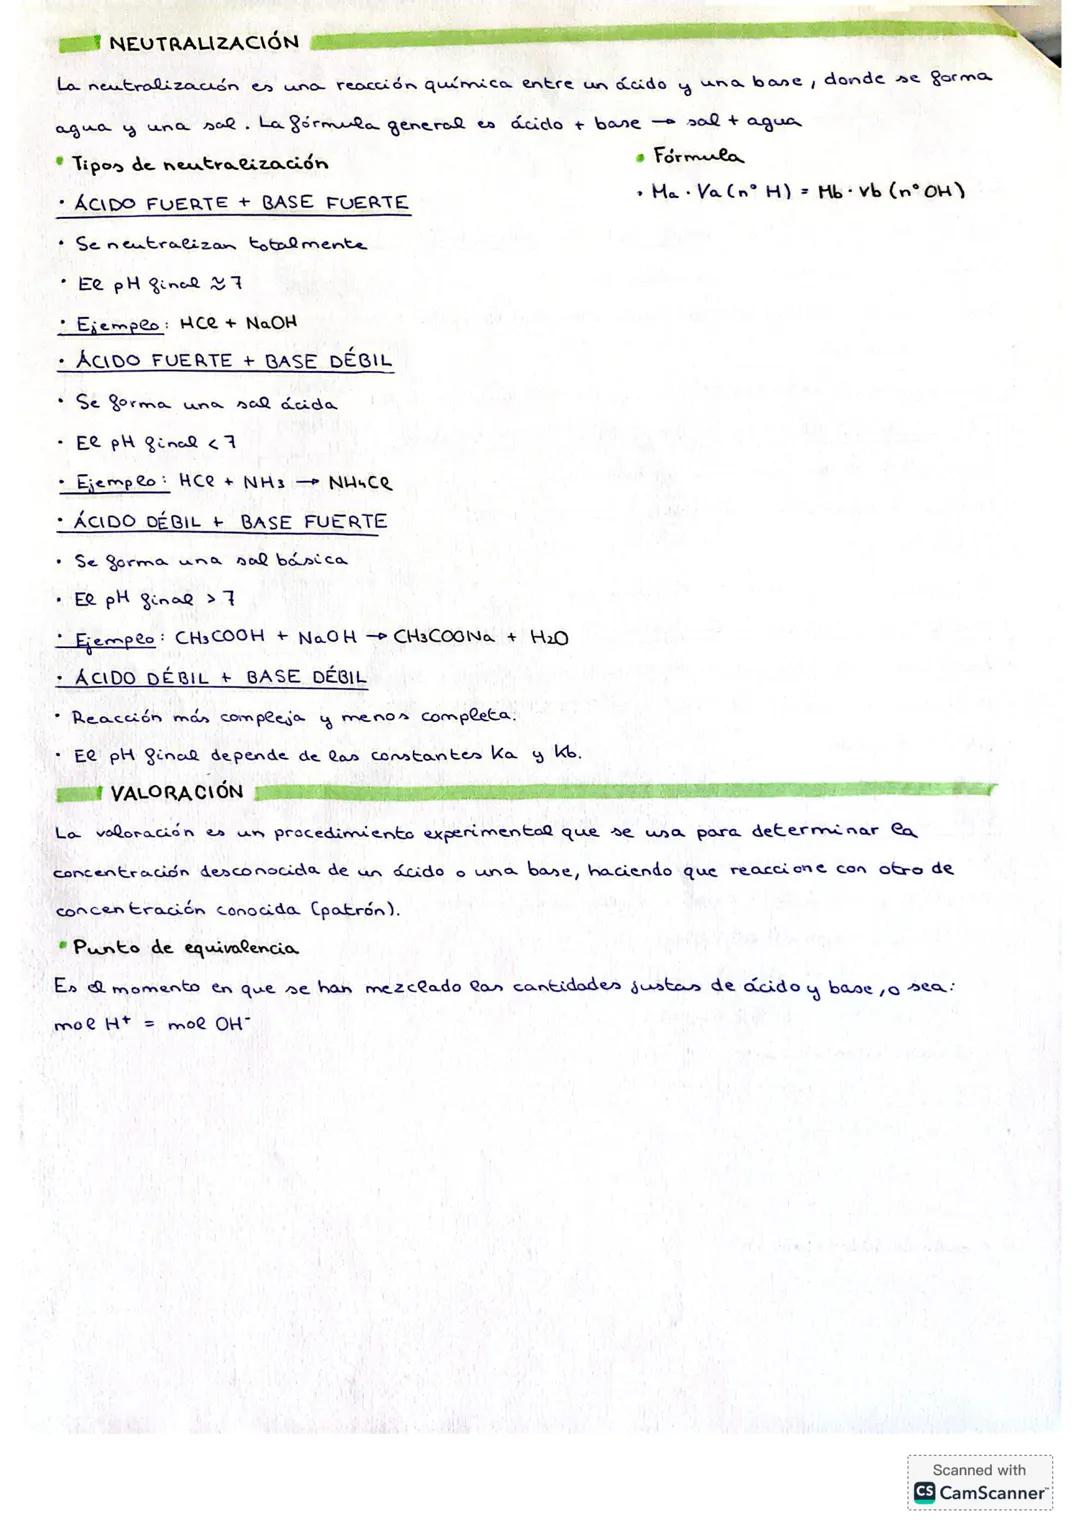 NEUTRALIZACIÓN
La neutralización es una reacción química entre un ácido y una base, donde se forma
agua y una sal. La fórmula general es ácido + base → sal + agua
• Tipos de neutralización
• Fórmula
• Ma · Va (nº H) = Mb · Vb (nº OH)
• ÁCIDO FUERTE + BASE FUERTE
• Se neutralizan totalmente
• El pH final ≈ 7
• Ejemplo: HCl + NaOH
• ÁCIDO FUERTE + BASE DÉBIL
• Se forma una sal ácida
• El pH final < 7
• Ejemplo: HCl + NH₃ → NH₄Cl
• ÁCIDO DÉBIL + BASE FUERTE
• Se forma una sal básica
• El pH final > 7
• Ejemplo: CH₃COOH + NaOH → CH₃COONa + H₂O
• ÁCIDO DÉBIL + BASE DÉBIL
• Reacción más compleja y menos completa.
• El pH final depende de las constantes Ka y Kb.
VALORACIÓN
La valoración es un procedimiento experimental que se usa para determinar la
concentración desconocida de un ácido o una base, haciendo que reaccione con otro de
concentración conocida (patrón).
• Punto de equivalencia
Es el momento en que se han mezclado las cantidades justas de ácido y base, o sea:
mol H⁺ = mol OH⁻
Scanned with
CS CamScanner™